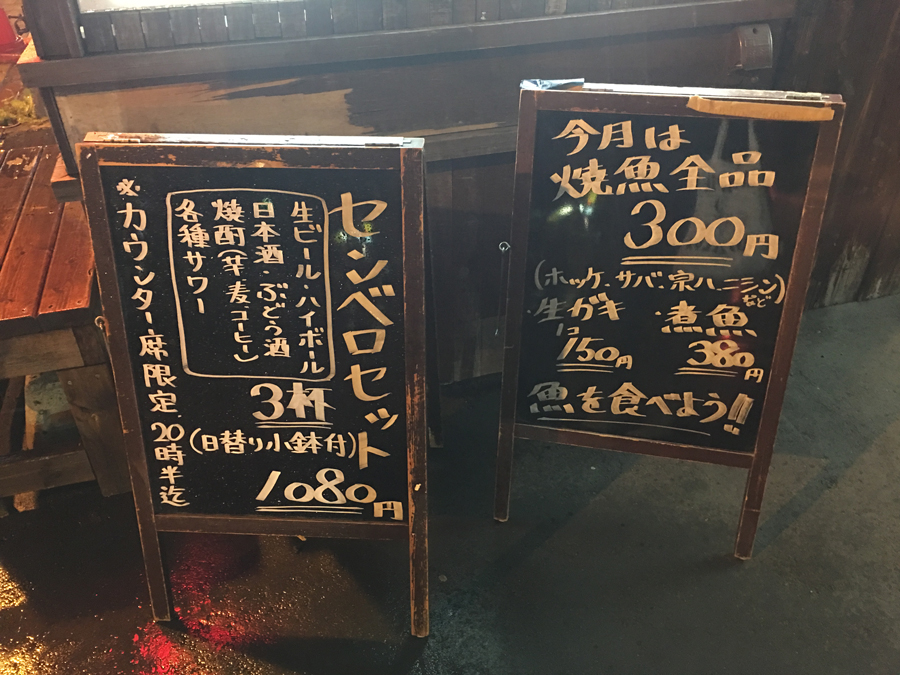 センベロセット
生ビール・ハイボール
日本酒・ぶどう酒
焼酎(芋・麦・コーヒー)
各種サワー
3杯
(日替り小鉢付)
1080円
※カウンター席限定 20時半迄
今月は
焼魚全品
300円
(ホッケ・サバ・宗八・ニシンなど)
・生ガキ
1コ
150円
・煮魚
380円
魚を食べよう!!